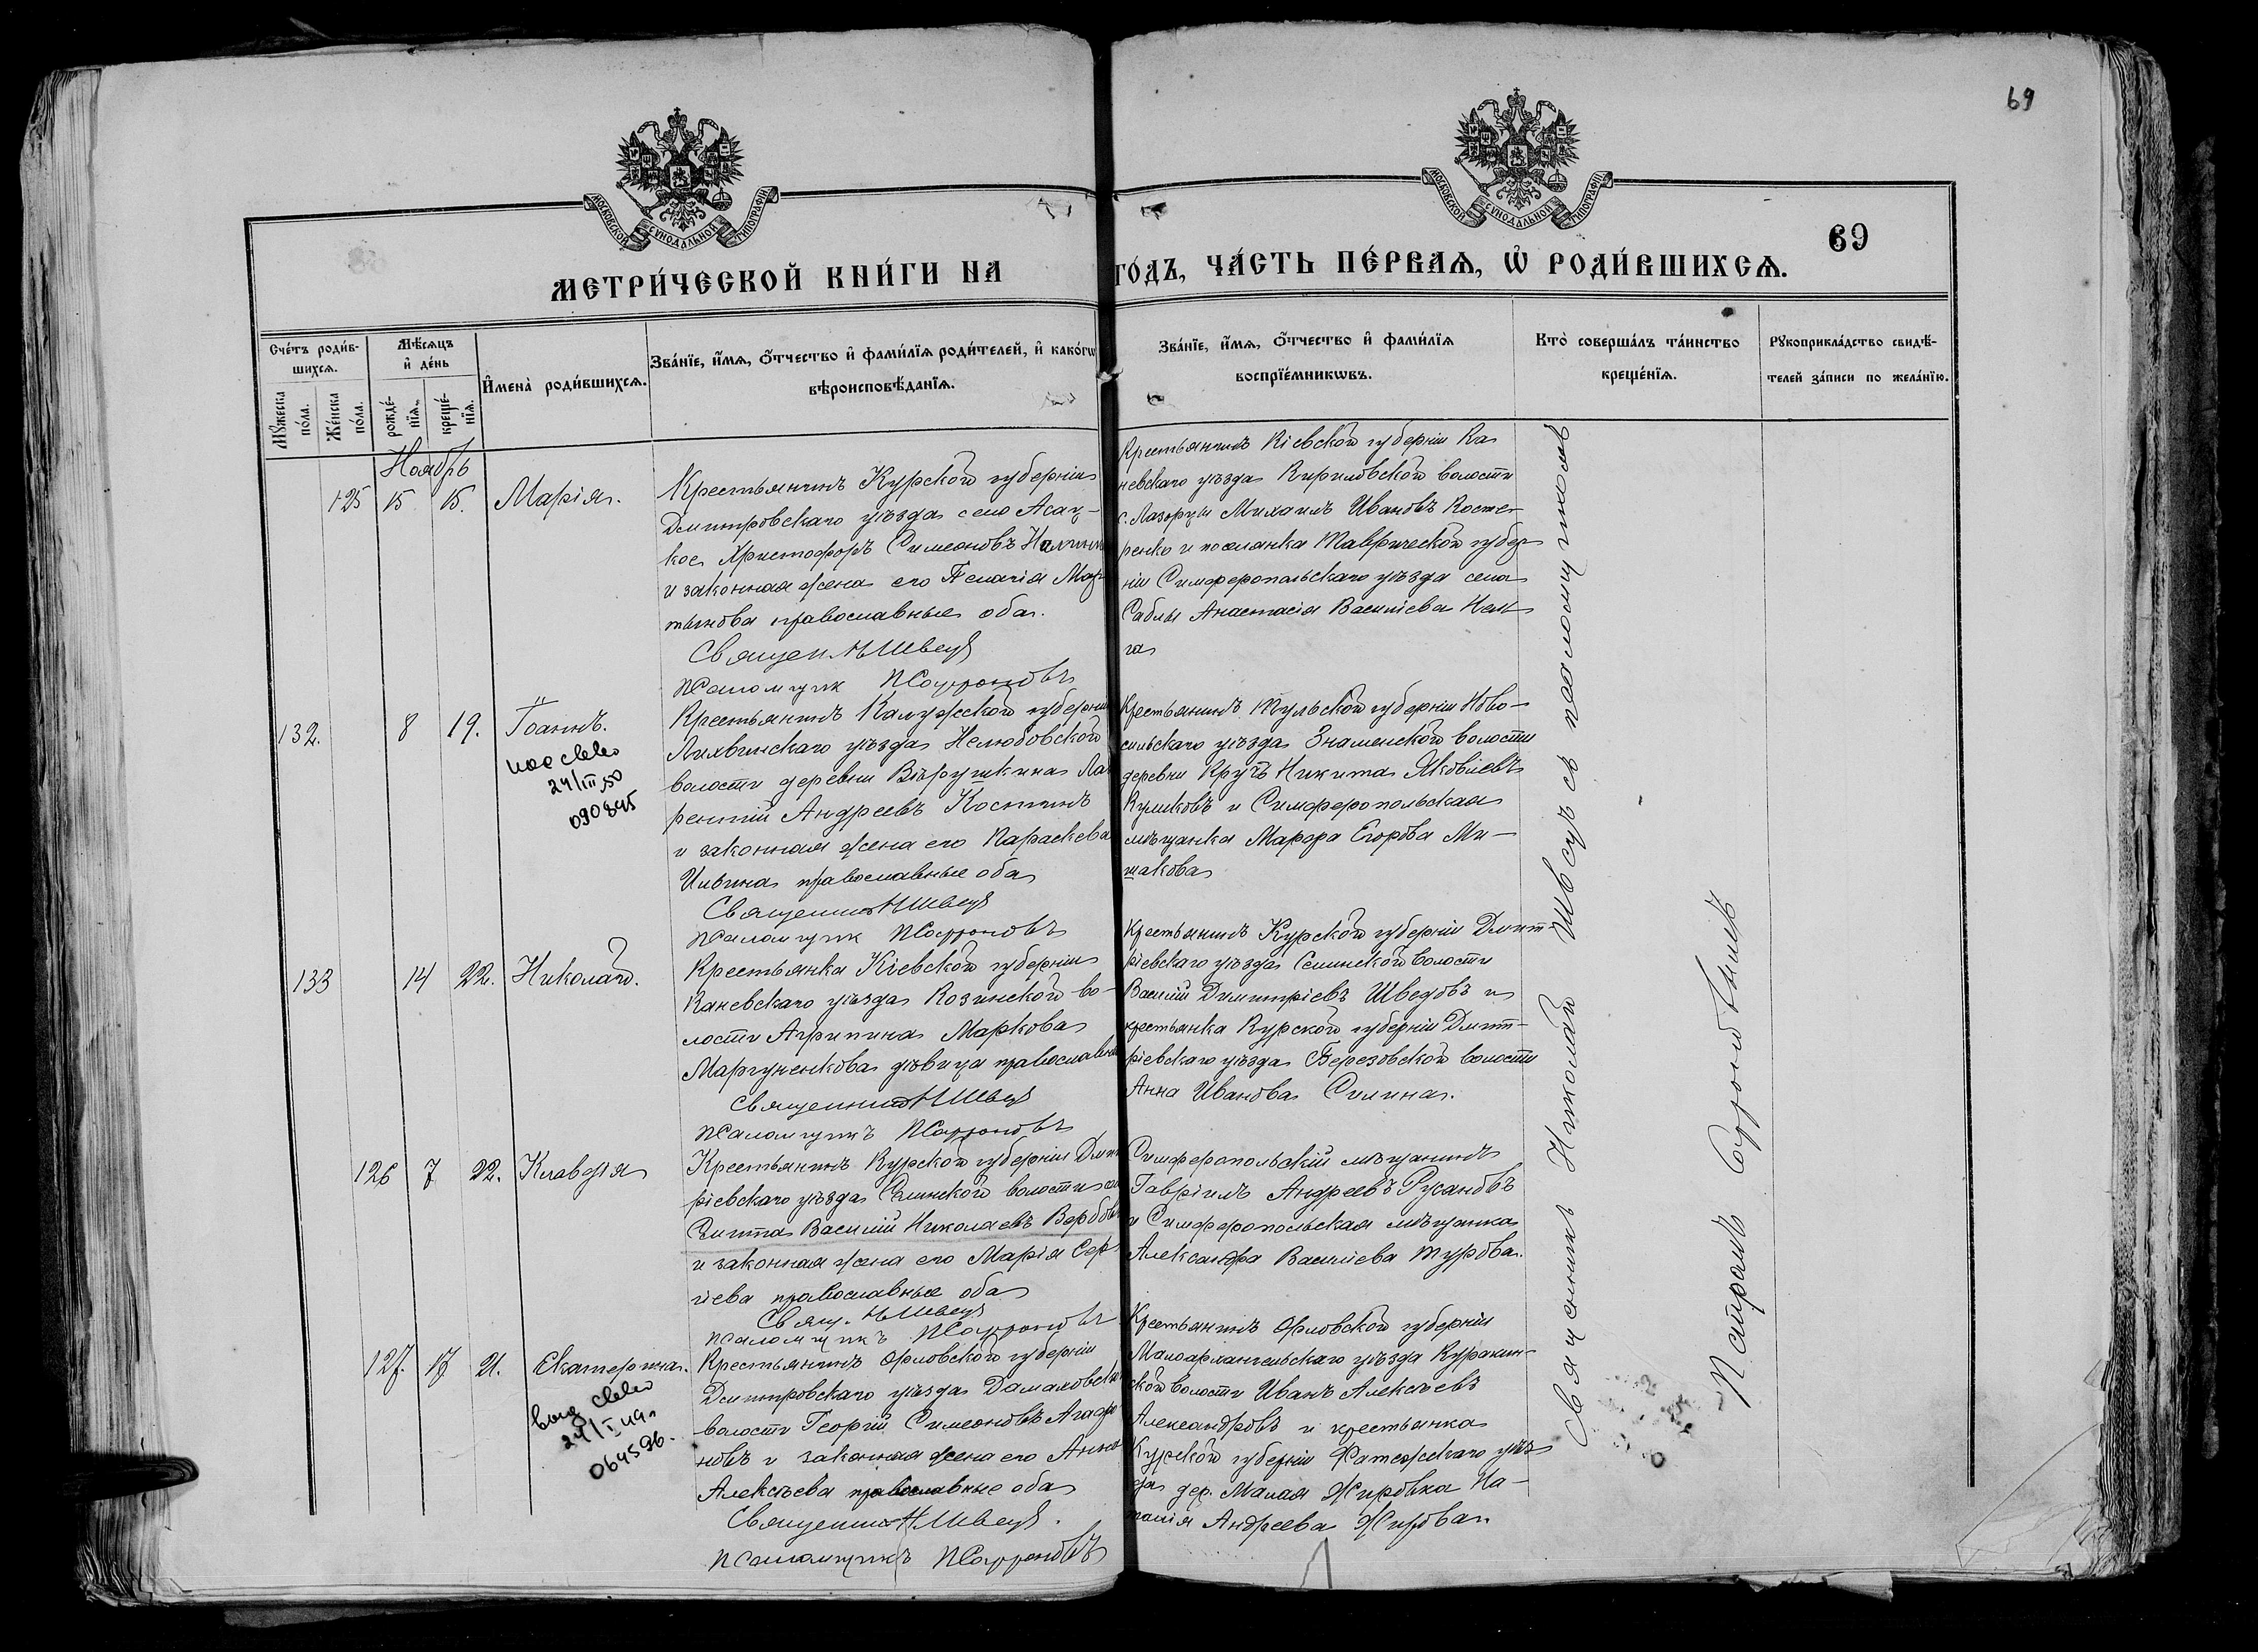 69
МОСКОВСКОЙ СѴНОДАЛЬНОЙ ТИПОГРАФІИ
МОСКОВСКОЙ СѴНОДАЛЬНОЙ ТИПОГРАФІИ
69
МЕТРИ́ЧЕСКОЙ КНИ́ГИ НА
ГО́ДЪ, ЧА́СТЬ ПЕ́РВАѦ, Ѡ҆ РОДИ́ВШИХСѦ.
Сче́тъ роди́в-
шихсѧ.
Мꙋжеска по́ла.
Же́нска по́ла.
Мѣ́сѧцъ
и҆ де́нь
рожде́-
нїѧ.
креще́-
нїѧ.
И҆мена̀ роди́вшихсѧ.
Зва́нїе, и҆́мѧ, ѻ҆́тчество и҆ фами́лїѧ роди́телей, и҆ како́гѡ
вѣроисповѣ́данїѧ.
Зва́нїе, и҆́мѧ, ѻ҆́тчество и҆ фами́лїѧ
воспрїе́мникѡвъ.
Кто̀ соверша́лъ та́инство
креще́нїѧ.
Рꙋкоприкла́дство свидѣ́-
телей за́писи по жела́нїю.
Ноябрь
125 15 15. Марія.
Крестьянинъ Курской губерніи
Дмитровскаго уѣзда село Асац-
кое Христофоръ Симеоновъ
и законная жена его Пелагія Мар
тынова православные оба.
Священ. Н Швецъ
Псаломщик П Сафроновъ
Крестьянинъ Кіевской губерніи Ка
невскаго уѣзда Кириловской волости
с. Лазорцы Михаилъ Ивановъ Косте-
ренко и поселянка Таврической губер
ніи Симферопольскаго уѣзда села
Саблы Анастасія Василіева
га
132. 8 19. Іоаннъ.
24/III 50
090845
Крестьянинъ Калужской губерніи
Лихвинскаго уѣзда Нелюбовской
волости деревни Вѣрушкина Лав
рентій Андреевъ Костинъ
и законная жена его Параскева
Ильина православные оба
Священник Н Швецъ
Псаломщик П Сафроновъ
Крестьянинъ Тульской губерніи Ново-
сильскаго уѣзда Знаменской волости
деревни Кручь Никита Яковлевъ
Куликовъ и Симферопольская
мѣщанка Марфа Егорова Ми-
шакова
133 14 22. Николай.
Крестьянка Кіевской губерніи
Каневскаго уѣзда Козинской во-
лости Агрипина Маркова
Маргуненкова дѣвица православная
Священник Н Швецъ
Псаломщикъ П Сафроновъ
Крестьянинъ Курской губерніи Дмит-
ріевскаго уѣзда Селинской волости
Василій Димитріевъ Шведовъ и
крестьянка Курской губерніи Дмит-
ріевскаго уѣзда Березовской волости
Анна Иванова Силина.
126 7 22. Клавдія
Крестьянинъ Курской губерніи Дмит
ріевскаго уѣзда Селинской волости
Василій Николаевъ
и законная жена его Марія Сер
гіева православные оба
Свящ. Н Швецъ
Псаломщикъ П Сафроновъ
Симферопольскій мѣщанинъ
Гавріилъ Андреевъ Русановъ
и Симферопольская мѣщанка
Александра Василіева Турова.
127. 17 21. Екатерина.
24/I 49г
064596.
Крестьянинъ Орловской губерніи
Дмитровскаго уѣзда Домаховской
волости Георгій Симеоновъ Агафо
новъ и законная жена его Анна
Алексѣева православные оба
Священник Н Швецъ.
Псаломщикъ П Сафроновъ
Крестьянинъ Орловской губерніи
Малоархангельскаго уѣзда Куракин-
ской волости Иванъ Алексѣевъ
Александровъ и крестьянка
Курской губерніи Фатежскаго уѣз
да дер. Малая Жировка На-
талія Андреева Жирова.
Священникъ Николай Швецъ съ псаломщикомъ
Сафроновымъ